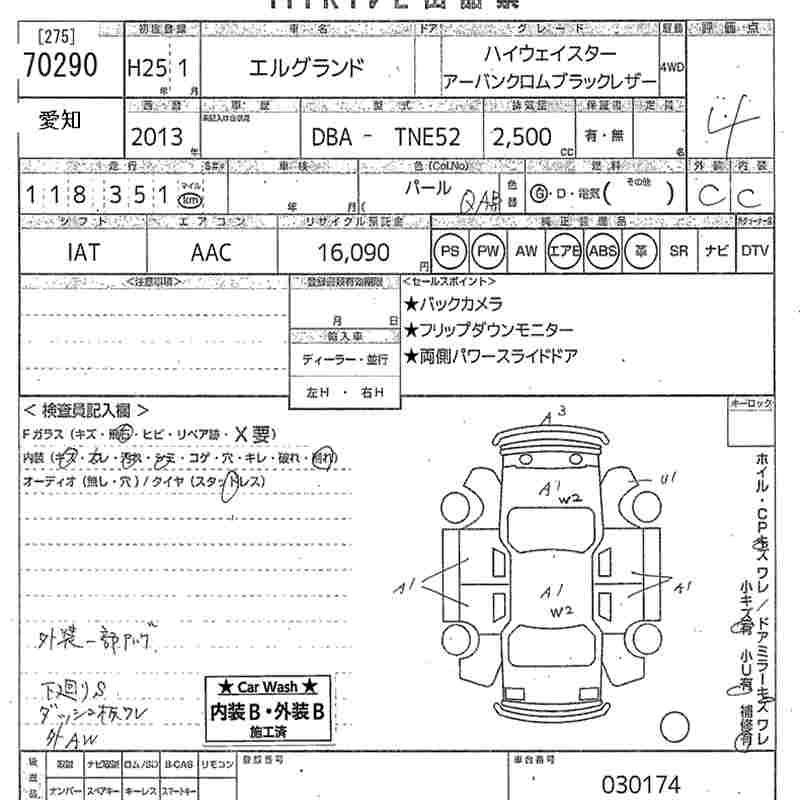 [275]
70290
初度登録
車名
ドア
グレード
駆動
評価点
H25 1
年 月
エルグランド
ハイウェイスター
アーバンクロムブラックレザー
4WD
4
愛知
西暦
車歴
型式
排気量
車検証
定員
2013 年
DBA - TNE52
2,500 cc
有・無
名
走行
車検
色(Col.No)
色替
燃料
外装
内装
118 351
マイル
km
年 月
パール
QAB
G・D・電気( その他 )
C
C
シフト
エアコン
リサイクル預託金
純正装備品
IAT
AAC
16,090 円
PS PW AW エアB ABS 革 SR ナビ DTV
<注意事項>
登録書類有効期限
月 日
輸入車
ディーラー・並行
左H ・ 右H
<セールスポイント>
★バックカメラ
★フリップダウンモニター
★両側パワースライドドア
<検査員記入欄>
キーロック
Fガラス(キズ・飛石・ヒビ・リペア跡・X要)
内装(キズ・スレ・汚れ・シミ・コゲ・穴・キレ・破れ・割れ)
オーディオ(無し・穴)/タイヤ(スタッドレス)
A3
A1
W2
U1
A1
A1
W2
A1
ホイル・CPキズワレ/ドアミラーキズワレ
小キズ有 小U有 補修有
外装一部アリ
下廻りS
ダッシュ板ワレ
外AW
★ Car Wash ★
内装B・外装B
施工済
取説
ナビ取説
ロム/SD
B-CAS
リモコン
ナンバー
スペアキー
キーレス
スマートキー
登録番号
車台番号
030174